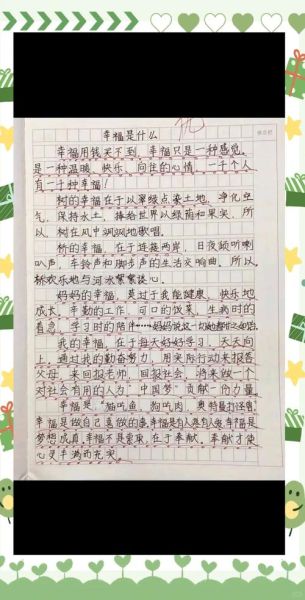 优
幸福是什么
幸福用钱买不到，幸福只是一种感觉，
是一种温暖、快乐、向往的心情。一千个人
有一千种幸福！
树的幸福在于以翠绿点缀土地，净化空
气，保持水土，捧给世界以绿荫和果实，所
以，树在风中飒飒地歌唱。
桥的幸福，在于连接两岸，日夜倾听喇
叭声，车铃声和脚步声的生活交响曲。所以
桥欢乐地与河水絮絮谈心。
妈妈的幸福，莫过于我能健康、快乐地
成长，辛勤的工作，可口的饭菜，生病时的
着急，学习时的陪伴……妈妈说这一切她都
我的幸福，在于每天好好学习，天天向
上，通过我的勤奋努力，用实际行动来报答
父母，来回报老师，回报社会，将来做一个
对社会有用的人，为“中国梦”贡献一份力量。
幸福是，猫吃鱼，狗吃肉，奥特曼打怪兽
幸福是做自己喜做的事，幸福是有人爱有人疼，幸福是
梦想成真，幸福不是索取，在于奉献，奉献才使
心灵丰满而充实。